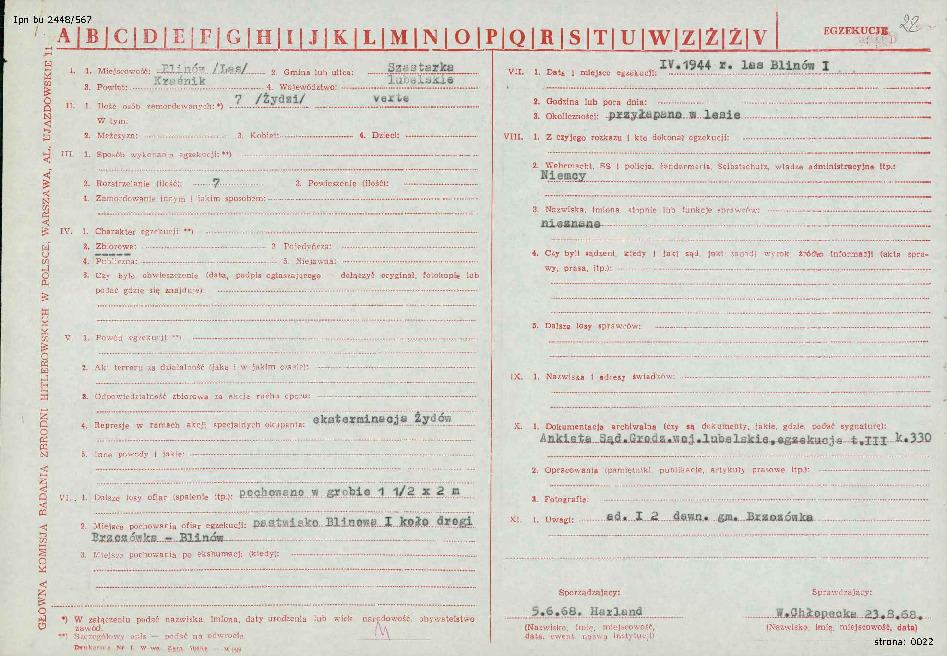 Ipn bu 2448/567
A B C D E F G H I J K L M N O P Q R S T U W Z Ź Ż V
EGZEKUCJE
22
GŁÓWNA KOMISJA BADANIA ZBRODNI HITLEROWSKICH W POLSCE, WARSZAWA, AL. UJAZDOWSKIE 11
I. 1. Miejscowość: Blinów /Las/ 2. Gmina lub ulica: Szastarka
3. Powiat: Kraśnik 4. Województwo: lubelskie
II. 1. Ilość osób zamordowanych:*) 7 /Żydzi/ verte
W tym:
2. Mężczyzn: 3. Kobiet: 4. Dzieci:
III. 1. Sposób wykonania egzekucji:**)
2. Rozstrzelanie (ilość): 7 3. Powieszenie (ilość):
4. Zamordowanie innym i jakim sposobem:
IV. 1. Charakter egzekucji **)
2. Zbiorowa: 3 Pojedyńcza:
4. Publiczna: 5. Niejawna:
6. Czy było obwieszczenie (data, podpis ogłaszającego dołączyć oryginał, fotokopię lub
podać gdzie się znajduje):
V 1. Powód egzekucji **):
2. Akt terroru za działalność (jaką i w jakim czasie):
3. Odpowiedzialność zbiorowa za akcje ruchu oporu:
4. Represje w ramach akcji specjalnych okupanta: eksterminacja Żydów
5. Inne powody i jakie:
VI. 1. Dalsze losy ofiar (spalenie itp.): pochowano w grobie 1 1/2 x 2 m
2. Miejsce pochowania ofiar egzekucji: pastwisko Blinowa I koło drogi
Brzozówka - Blinów
3. Miejsce pochowania po ekshumacji (kiedy):
*) W załączeniu podać nazwiska, imiona, daty urodzenia lub wiek, narodowość, obywatelstwo
zawód.
**) Szczegółowy opis — podać na odwrocie.
VII. 1. Data i miejsce egzekucji: IV.1944 r. las Blinów I
2. Godzina lub pora dnia:
3. Okoliczności: przyłapano w lesie
VIII. 1. Z czyjego rozkazu i kto dokonał egzekucji:
2. Wehrmacht, SS i policja, żandarmeria, Selbstschutz, władze administracyjne itp.:
Niemcy
3. Nazwiska, imiona, stopnie lub funkcje sprawców:
nieznane
4. Czy byli sądzeni, kiedy i jaki sąd, jaki zapadł wyrok źródło informacji (akta spra-
wy, prasa, itp.):
5. Dalsze losy sprawców:
IX. 1. Nazwiska i adresy świadków:
X. 1. Dokumentacja archiwalna (czy są dokumenty, jakie, gdzie, podać sygnaturę):
Ankieta Sąd.Grodz.woj.lubelskie,egzekucje t.III k.330
2. Opracowania (pamiętniki, publikacje, artykuły prasowe itp.):
3. Fotografie:
XI. 1. Uwagi: ad. I 2 dawn. gm. Brzozówka
Sporządzający: Sprawdzający:
5.6.68. Harland W.Chłopecka 23.8.68.
(Nazwisko, imię, miejscowość, (Nazwisko, imię, miejscowość, data)
data, ewent. nazwa instytucji)
strona: 0022